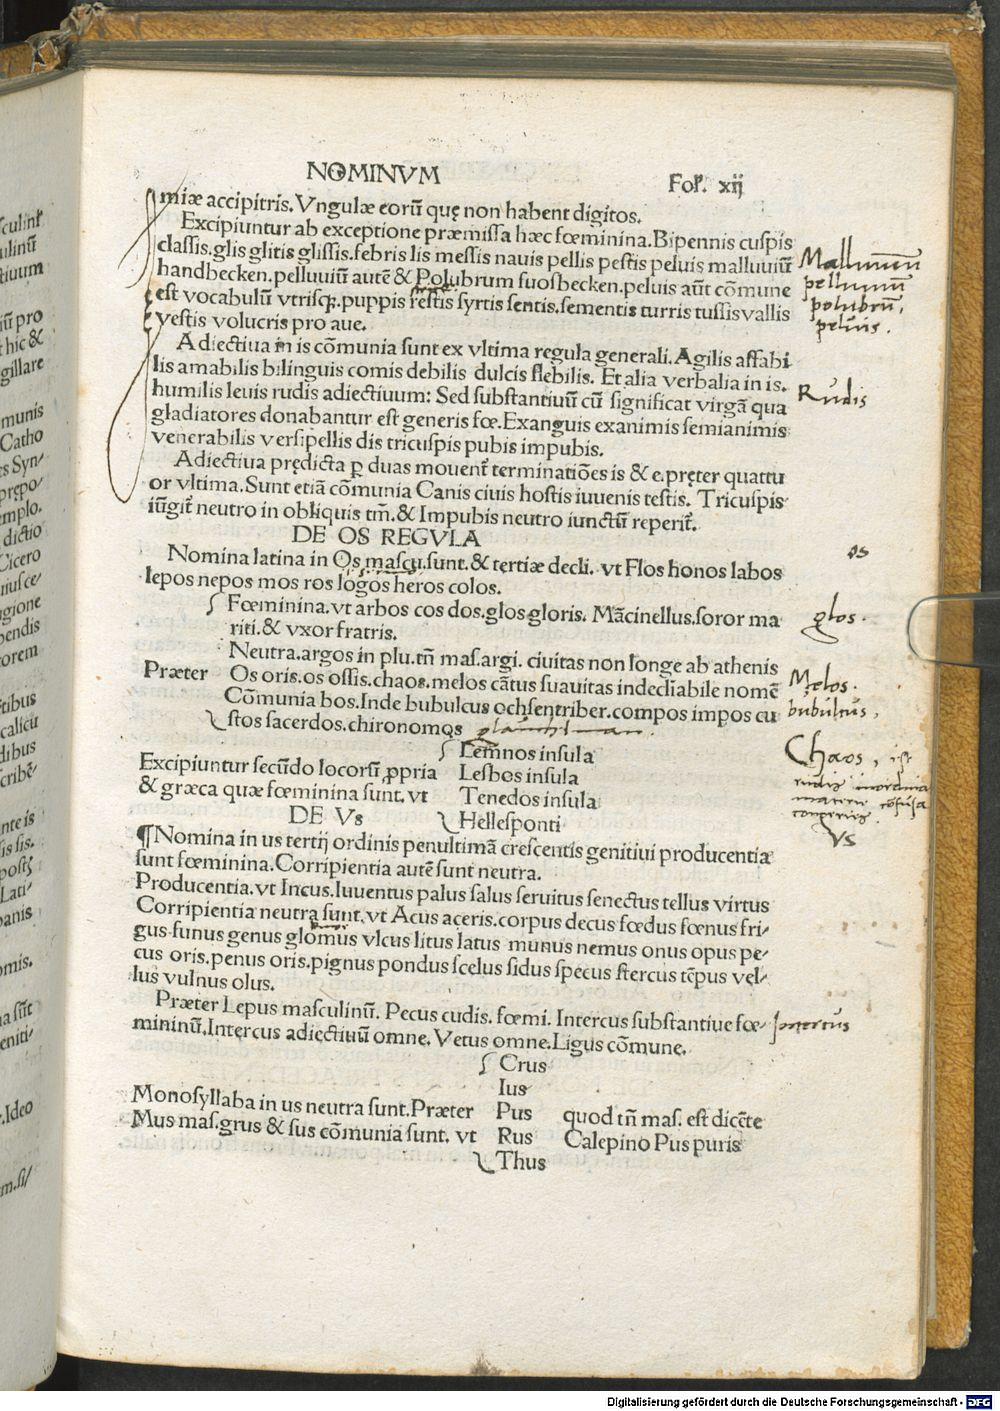 NOMINVM
Fol. xij
miæ accipitris. Vngulæ eorũ quę non habent digitos.
Excipiuntur ab exceptione præmissa hæc fœminina. Bipennis cuspis
classis. glis glitis glissis. febris lis messis nauis pellis pestis peluis malluuiũ
handbecken. pelluuiũ autẽ & Polubrum fuosbecken. peluis aũt cõmune
est vocabulũ vtrisqꝫ. puppis restis syrtis sentis. sementis turris tussis vallis
vestis volucris pro aue.
Adiectiua in is cõmunia sunt ex vltima regula generali. Agilis affabi
lis amabilis bilinguis comis debilis dulcis flebilis. Et alia verbalia in is.
humilis leuis rudis adiectiuum: Sed substantiuũ cũ significat virgã qua
gladiatores donabantur est generis fœ. Exanguis exanimis semianimis
venerabilis versipellis dis tricuspis pubis impubis.
Adiectiua prędicta ꝑ duas mouent᷑ terminatiões is & e. pręter quattu
or vltima. Sunt etiã cõmunia Canis ciuis hostis iuuenis testis. Tricuspis
iũgit᷑ neutro in obliquis tm̃. & Impubis neutro iunctũ reperit᷑.
DE OS REGVLA
Nomina latina in Os mascu. sunt. & tertiæ decli. vt Flos honos labos
lepos nepos mos ros logos heros colos.
Fœminina. vt arbos cos dos. glos gloris. Mãcinellus. soror ma
riti. & vxor fratris.
Neutra. argos in plu. tñ mas. argi. ciuitas non longe ab athenis
Præter Os oris. os ossis. chaos. melos cãtus suauitas indecliabile nomẽ
Cõmunia bos. Inde bubulcus ochsentriber. compos impos cu
stos sacerdos. chironomos
Lemnos insula
Excipiuntur secũdo locorũ ꝓpria Lesbos insula
& græca quæ fœminina sunt. vt Tenedos insula
DE Vs Hellesponti
¶ Nomina in us tertij ordinis penultimã crescentis genitiui producentia
sunt fœminina. Corripientia autẽ sunt neutra.
Producentia. vt Incus. Iuuentus palus salus seruitus senectus tellus virtus
Corripientia neutra sunt. vt Acus aceris. corpus decus fœdus fœnus fri⸗
gus funus genus glomus vlcus litus latus munus nemus onus opus pe⸗
cus oris. penus oris. pignus pondus scelus sidus specus stercus tẽpus vel⸗
lus vulnus olus.
Præter Lepus masculinũ. Pecus cudis. fœmi. Intercus substantiue fœ⸗
mininũ. Intercus adiectiuũ omne. Vetus omne. Ligus cõmune.
Crus
Ius
Monosyllaba in us neutra sunt. Præter Pus quod tñ mas. est dicẽte
Mus mas. grus & sus cõmunia sunt. vt Rus Calepino Pus puris
Thus
Malluuium
pelluuiũ
polubrũ,
peluis.
Rudis
os
glos.
Melos.
bubulcus,
Chaos, est
rudis
Vs
Intercus
Digitalisierung gefördert durch die Deutsche Forschungsgemeinschaft - DFG